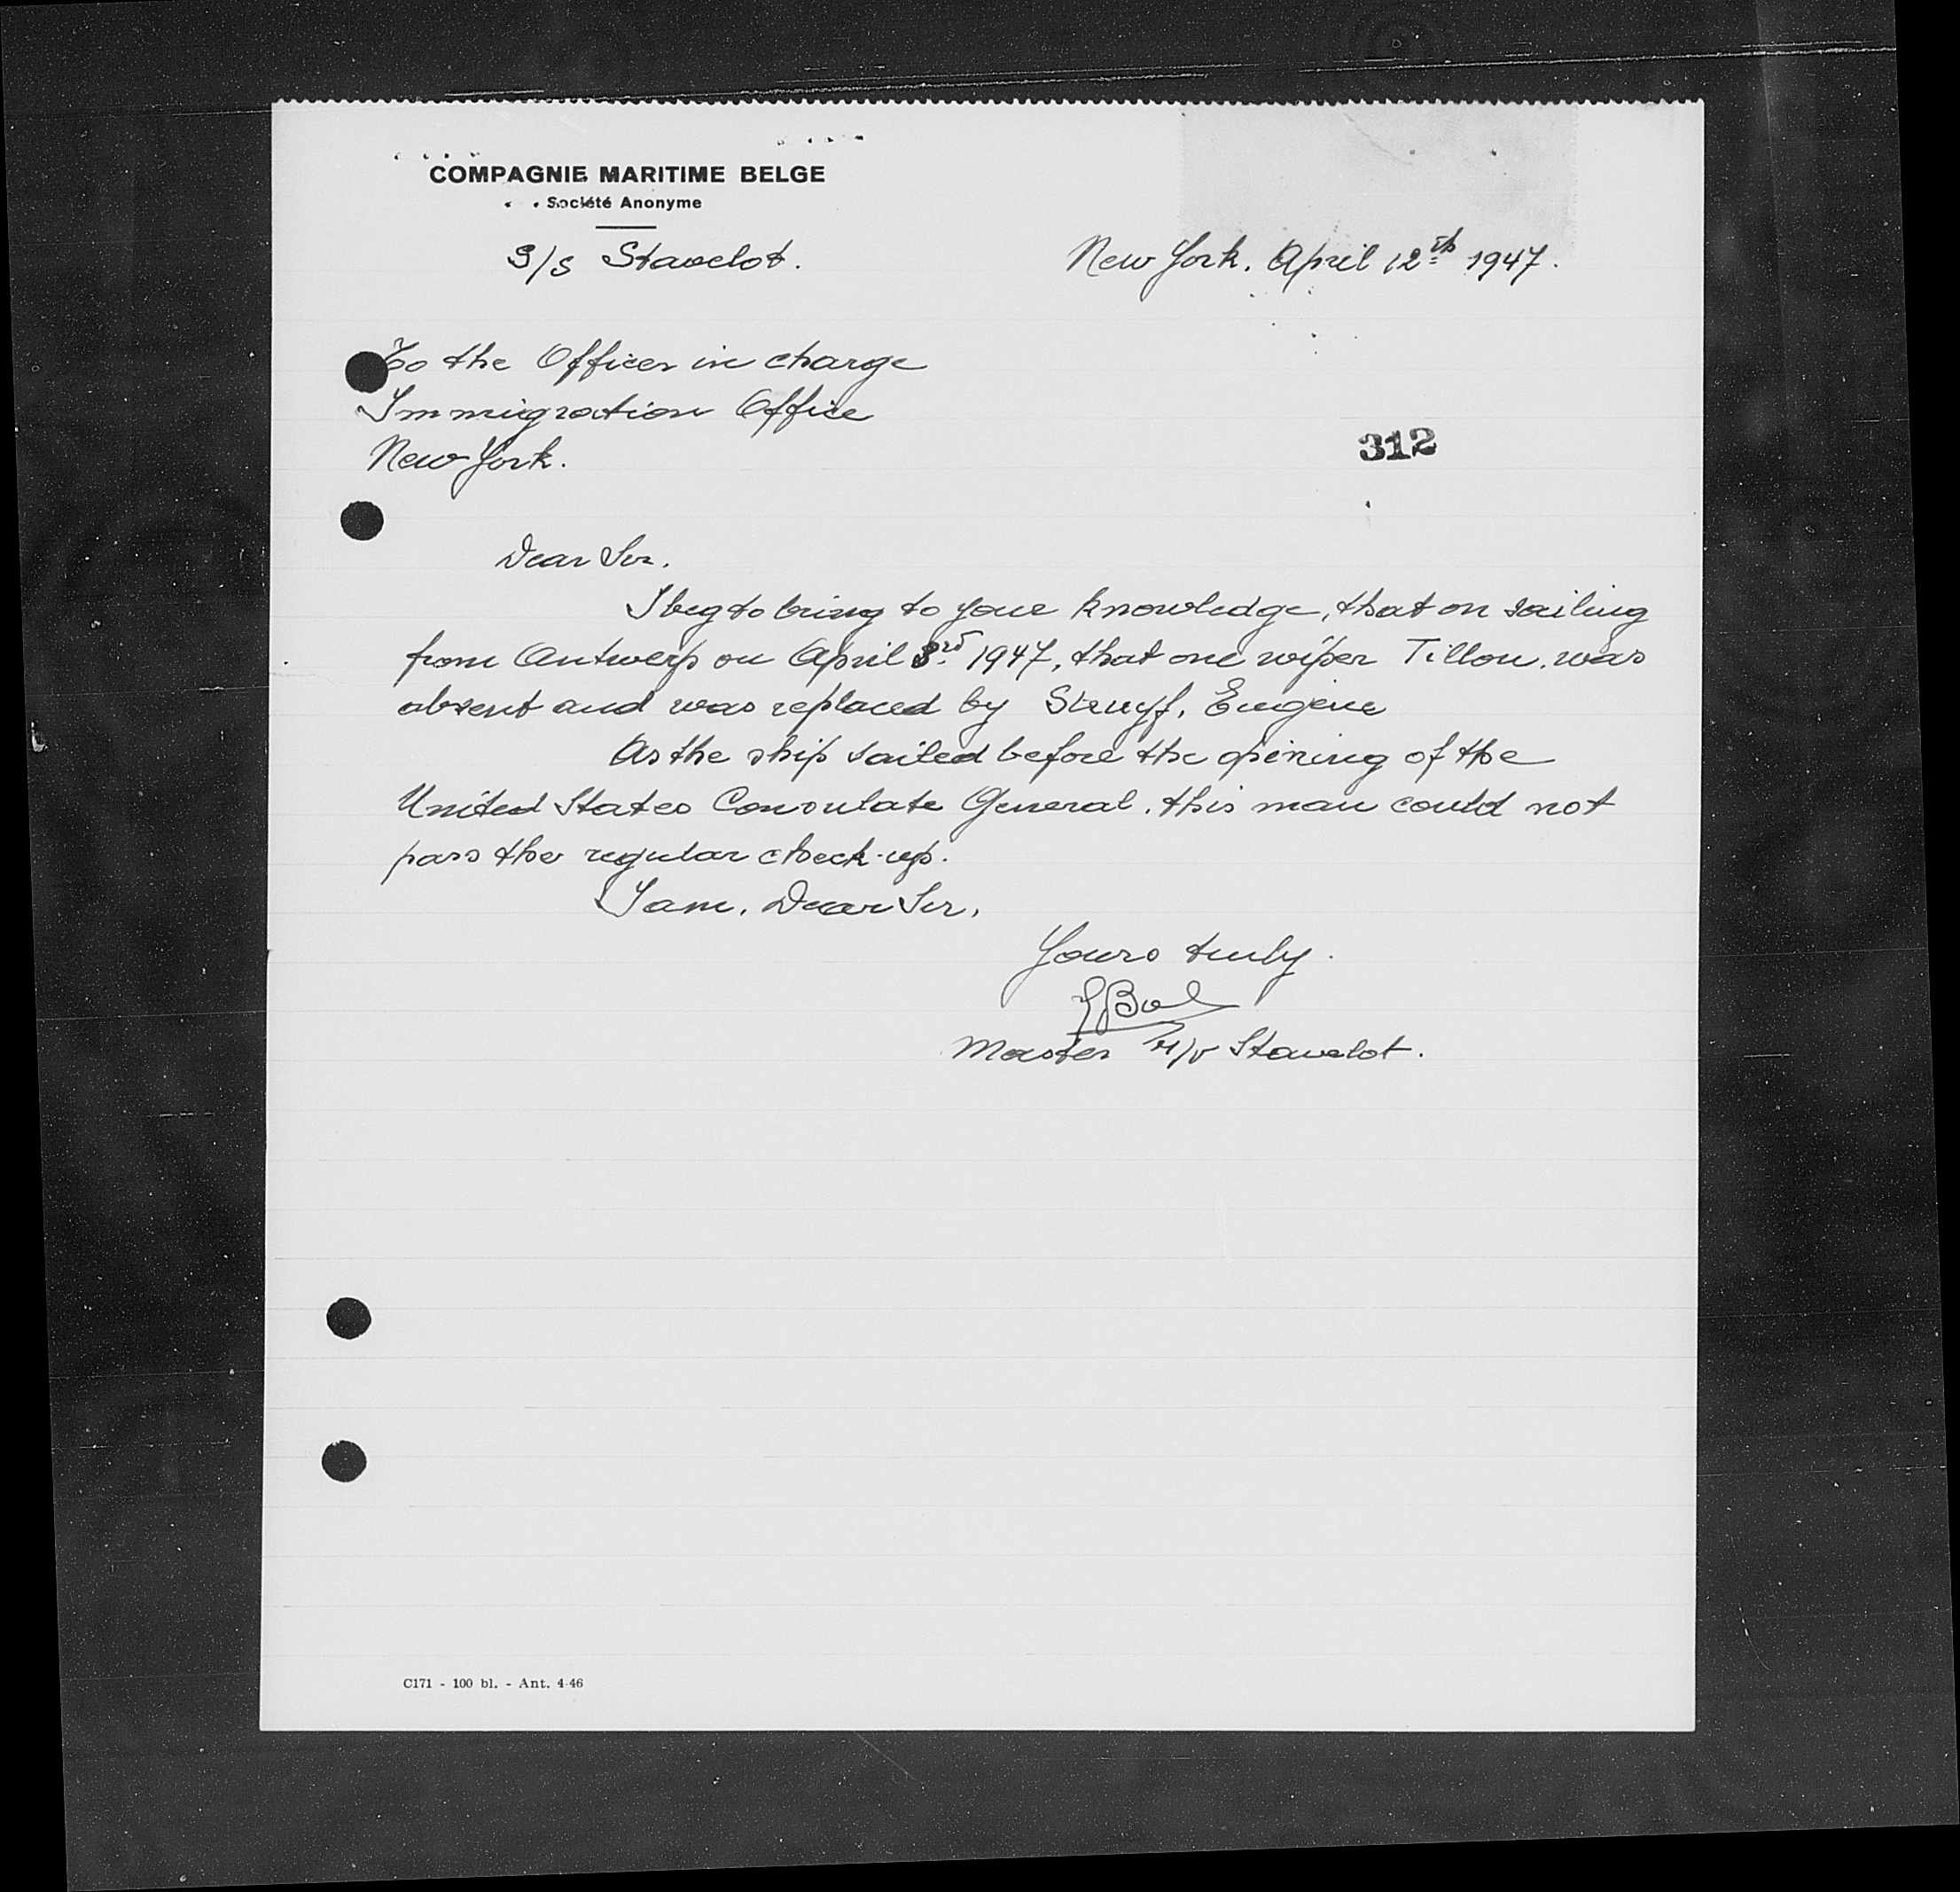 COMPAGNIE MARITIME BELGE
Société Anonyme
S/S Stavelot.
New York. April 12th 1947.
To the Officer in charge
Immigration Office
New York.
312
Dear Sir.
I beg to bring to your knowledge, that on sailing
from Antwerp on April 3rd 1947, that one wiper Tillon. was
absent and was replaced by Struyf, Eugène
As the ship sailed before the opening of the
United States Consulate General. this man could not
pass the regular check-up.
I am. Dear Sir,
Yours truly.
Master M/V Stavelot.
C171 - 100 bl. - Ant. 4-46